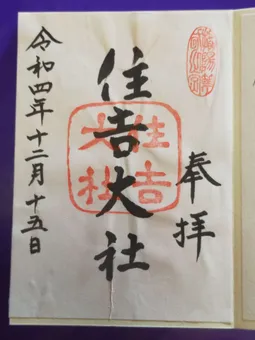 奉拝
住吉大社
住吉大社
令和四年十二月十五日